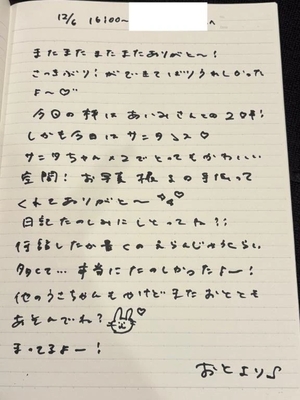 12/6 16:00~ へ
またまたまたまたありがと〜!
さっきぶり!ができてばりうれしかった
よ〜♡
今日の枠はあいみさんとの20杯!
しかも今日はサンタコス♡
サンタちゃん×2でとってもかわいい
空間!お写真撮まで
くれてありがと〜♡
日記たのしみにしとってね??
何話したか書くのえらんじゃうくらい
多くて…本当にたのしかったよー!
他のうさちゃんもやけどまたおととも
あそんでね?♡
まってるよー!
おとより♪